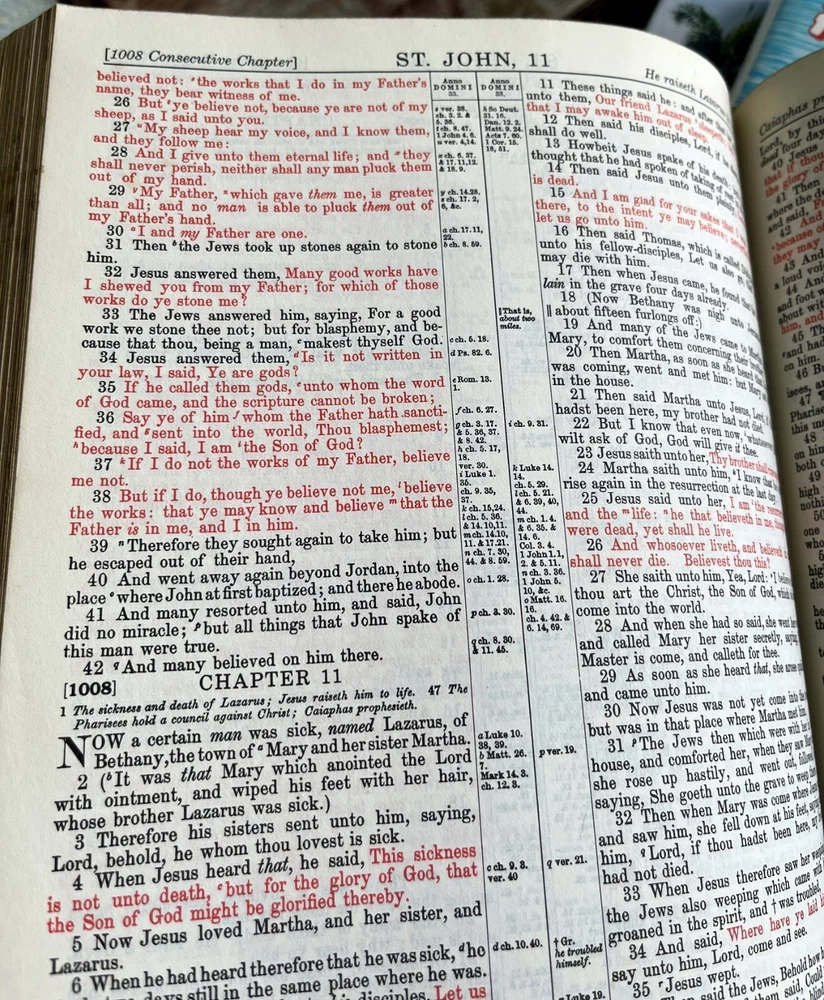 [1008 Consecutive Chapter]
ST. JOHN, 11
He raiseth Lazarus
believed not: the works that I do in my Father's
name, they bear witness of me.
26 But ye believe not, because ye are not of my
sheep, as I said unto you.
27 My sheep hear my voice, and I know them,
and they follow me:
28 And I give unto them eternal life; and they
shall never perish, neither shall any man pluck them
out of my hand.
29 My Father, which gave them me, is greater
than all; and no man is able to pluck them out of
my Father's hand.
30 I and my Father are one.
31 Then the Jews took up stones again to stone
him.
32 Jesus answered them, Many good works have
I shewed you from my Father; for which of those
works do ye stone me?
33 The Jews answered him, saying, For a good
work we stone thee not; but for blasphemy, and be-
cause that thou, being a man, makest thyself God.
34 Jesus answered them, Is it not written in
your law, I said, Ye are gods?
35 If he called them gods, unto whom the word
of God came, and the scripture cannot be broken;
36 Say ye of him whom the Father hath sancti-
fied, and sent into the world, Thou blasphemest;
because I said, I am the Son of God?
37 If I do not the works of my Father, believe
me not.
38 But if I do, though ye believe not me, believe
the works: that ye may know and believe that the
Father is in me, and I in him.
39 Therefore they sought again to take him; but
he escaped out of their hand,
40 And went away again beyond Jordan, into the
place where John at first baptized; and there he abode.
41 And many resorted unto him, and said, John
did no miracle; but all things that John spake of
this man were true.
42 And many believed on him there.
[1008] CHAPTER 11
1 The sickness and death of Lazarus; Jesus raiseth him to life. 47 The
Pharisees hold a council against Christ; Caiaphas prophesieth.
NOW a certain man was sick, named Lazarus, of
Bethany, the town of Mary and her sister Martha.
2 (It was that Mary which anointed the Lord
with ointment, and wiped his feet with her hair,
whose brother Lazarus was sick.)
3 Therefore his sisters sent unto him, saying,
Lord, behold, he whom thou lovest is sick.
4 When Jesus heard that, he said, This sickness
is not unto death, but for the glory of God, that
the Son of God might be glorified thereby.
5 Now Jesus loved Martha, and her sister, and
Lazarus.
6 When he had heard therefore that he was sick, he
days still in the same place where he was.
disciples, Let us
Anno
DOMINI
33.
s ver. 38.
ch. 3. 2. &
5. 36.
t ch. 8. 47.
1 John 4. 6.
u ver. 4,14.
x ch. 6. 37.
& 17.11,12.
& 18. 9.
y ch. 14.28.
z ch. 17. 2,
6, &c.
a ch. 17.11,
22.
b ch. 8. 59.
c ch. 5. 18.
d Ps. 82. 6.
e Rom. 13.
1.
f ch. 6. 27.
g ch. 3. 17.
& 5. 36, 37.
& 8. 42.
h ch. 5. 17,
18.
ver. 30.
i Luke 1.
35.
ch. 9. 35,
37.
k ch. 15,24.
l ch. 5. 36.
& 14.10,11.
m ch. 14.10,
11. & 17.21.
n ch. 7. 30,
44. & 8. 59.
o ch. 1. 28.
p ch. 3. 30.
q ch. 8. 30.
& 11. 45.
a Luke 10.
38, 39.
b Matt. 26.
7.
Mark 14. 3.
ch. 12. 3.
c ch. 9. 3.
ver. 40
d ch. 10. 40.
Anno
DOMINI
33.
h So Deut.
31. 16.
Dan. 12. 2.
Matt. 9. 24.
Acts 7. 60.
1 Cor. 15.
18, 51.
|| That is,
about two
miles.
i ch. 9. 31.
k Luke 14.
14.
ch. 5. 29.
l ch. 5. 21.
& 6. 39, 40,
44.
m ch. 1. 4.
& 6. 35. &
14. 6.
Col. 3. 4.
1 John 1.1,
2. & 5. 11.
n ch. 3. 36.
1 John 5.
10, &c.
o Matt. 16.
16.
ch. 4. 42. &
6. 14, 69.
p ver. 19.
q ver. 21.
† Gr.
he troubled
himself.
r Luke 19.
11 These things said he: and after
unto them, Our friend Lazarus sleepeth;
that I may awake him out of sleep.
12 Then said his disciples, Lord, if he
shall do well.
13 Howbeit Jesus spake of his death:
thought that he had spoken of taking of rest
14 Then said Jesus unto them plainly,
is dead.
15 And I am glad for your sakes that I
there, to the intent ye may believe;
let us go unto him.
16 Then said Thomas, which is called
unto his fellow-disciples, Let us also go,
may die with him.
17 Then when Jesus came, he found that
lain in the grave four days already.
18 (Now Bethany was nigh unto
|| about fifteen furlongs off:)
19 And many of the Jews came to Martha
Mary, to comfort them concerning their brother.
20 Then Martha, as soon as she heard that
was coming, went and met him: but Mary
in the house.
21 Then said Martha unto Jesus, Lord, if
hadst been here, my brother had not died.
22 But I know that even now, whatsoever
wilt ask of God, God will give it thee.
23 Jesus saith unto her, Thy brother shall
24 Martha saith unto him, I know that
rise again in the resurrection at the last day.
25 Jesus said unto her, I am the
and the life: he that believeth in me,
were dead, yet shall he live.
26 And whosoever liveth, and believeth
shall never die. Believest thou this?
27 She saith unto him, Yea, Lord: I
thou art the Christ, the Son of God, which
come into the world.
28 And when she had so said, she went
and called Mary her sister secretly, saying,
Master is come, and calleth for thee.
29 As soon as she heard that, she arose
and came unto him.
30 Now Jesus was not yet come into the
but was in that place where Martha met him.
31 The Jews then which were with her
house, and comforted her, when they saw
she rose up hastily, and went out, followed
saying, She goeth unto the grave to weep
32 Then when Mary was come where Jesus
and saw him, she fell down at his feet, saying
him, Lord, if thou hadst been here, my
had not died.
33 When Jesus therefore saw her weeping
the Jews also weeping which came with
groaned in the spirit, and † was troubled,
34 And said, Where have ye laid him
say unto him, Lord, come and see.
35 Jesus wept.
said the Jews, Behold how
Caiaphas